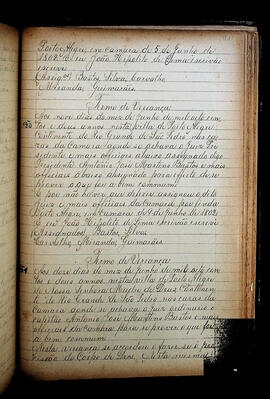 Porto Alegre em camara de 5 de Junho de
1802. e eu João Hipolito de Lima escrivão
escrevi
(Assig.) Bastos Silva, Carvalho
Miranda, Guimarães
Termo de Vereança
Aos nove dias do mez de junho de mil oito cen
tos e dous annos nesta villa de Porto Alegre
Continente do Rio Grande de São Pedro nas ca
zas da Camara aonde se achava o Juiz Pre
sidente e mais officiaes abaixo assignados o
Presidente Antonio José Martins Bastos e mais
officiaes abaixo assignados para effeito de se
prover o que fosse a bem commum
e por não haver que
Juiz e mais officiaes da Camara
Porto Alegre, em Camara de 9 de junho de 1802.
e eu João Hipolito de Lima escrivão escrevi
(Assignados) Bastos Silva
Carvalho, Miranda, Guimarães
Termo de Vereança
Aos doze dias do mez de junho de mil oito cen
tos e dous annos nesta villa de Porto Alegre
de Nossa Senhora Madre de Deus Continen
te do Rio Grande de São Pedro nas cazas da
camara aonde se achava o juiz ordinario o
capitão Antonio José Martins Bastos e mais
officiaes da camara para se prover o que fos
se a bem commum
Nesta vereança se accordou o fazer-se a pro
cissão do Corpo de Deus, Nesta mesma